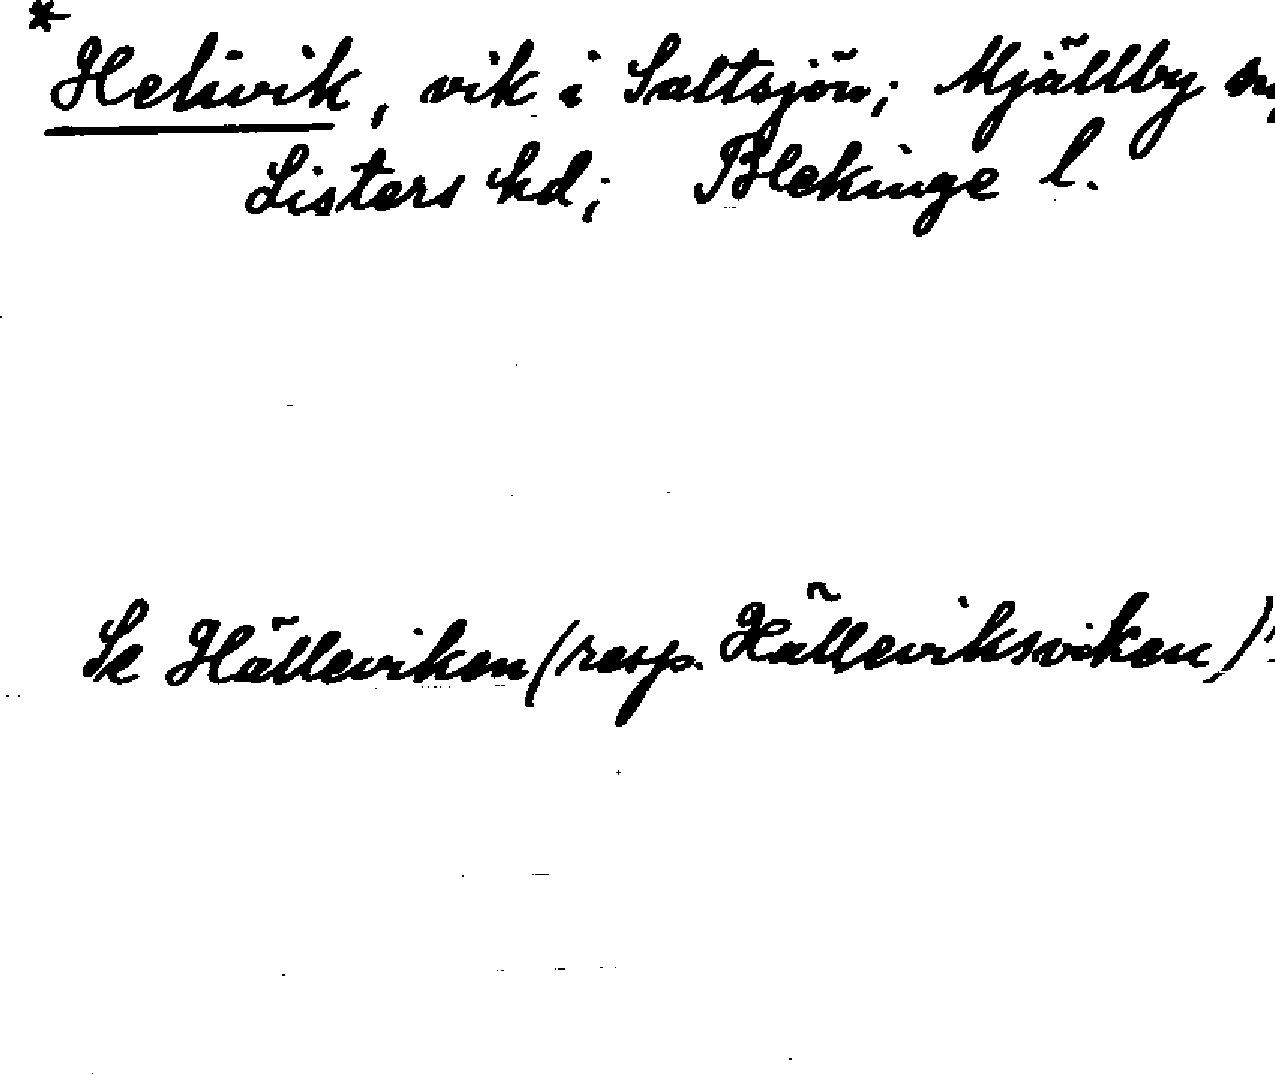 * Helivik, vik i Saltsjön; Mjällby sn,
Listers hd; Blekinge l.
Se Hälleviken (resp. Hälleviksviken)!